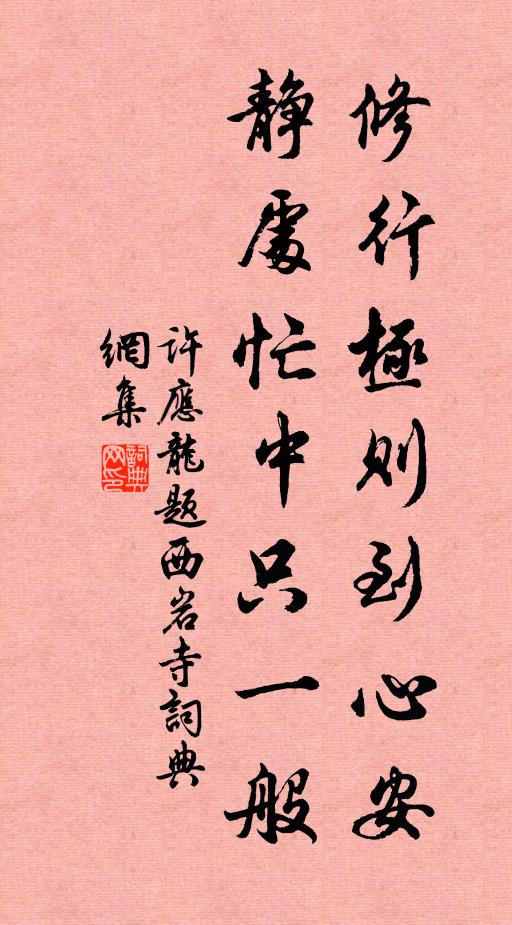 修行極則到心安
静處忙中只一般
許應龍題西岩寺詞典
網集
詞典
网印